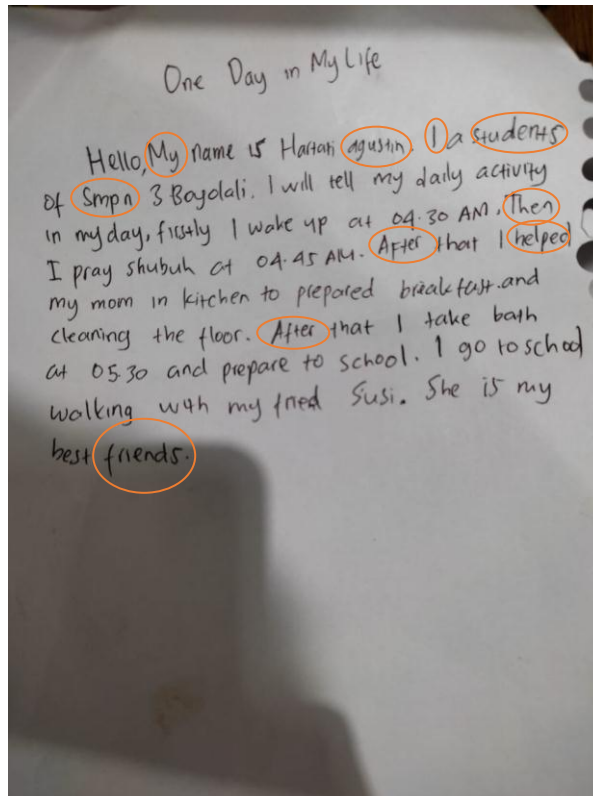 One Day in My Life
Hello, My name is Hartati agustin. I a students
of Smpn 3 Boyolali. I will tell my daily activity
in my day, firstly I wake up at 04.30 AM, Then
I pray shubuh at 04.45 AM. After that I helped
my mom in kitchen to prepared breakfast.and
cleaning the floor. After that I take bath
at 05.30 and prepare to school. I go to school
walking with my fried Susi. She is my
best friends.